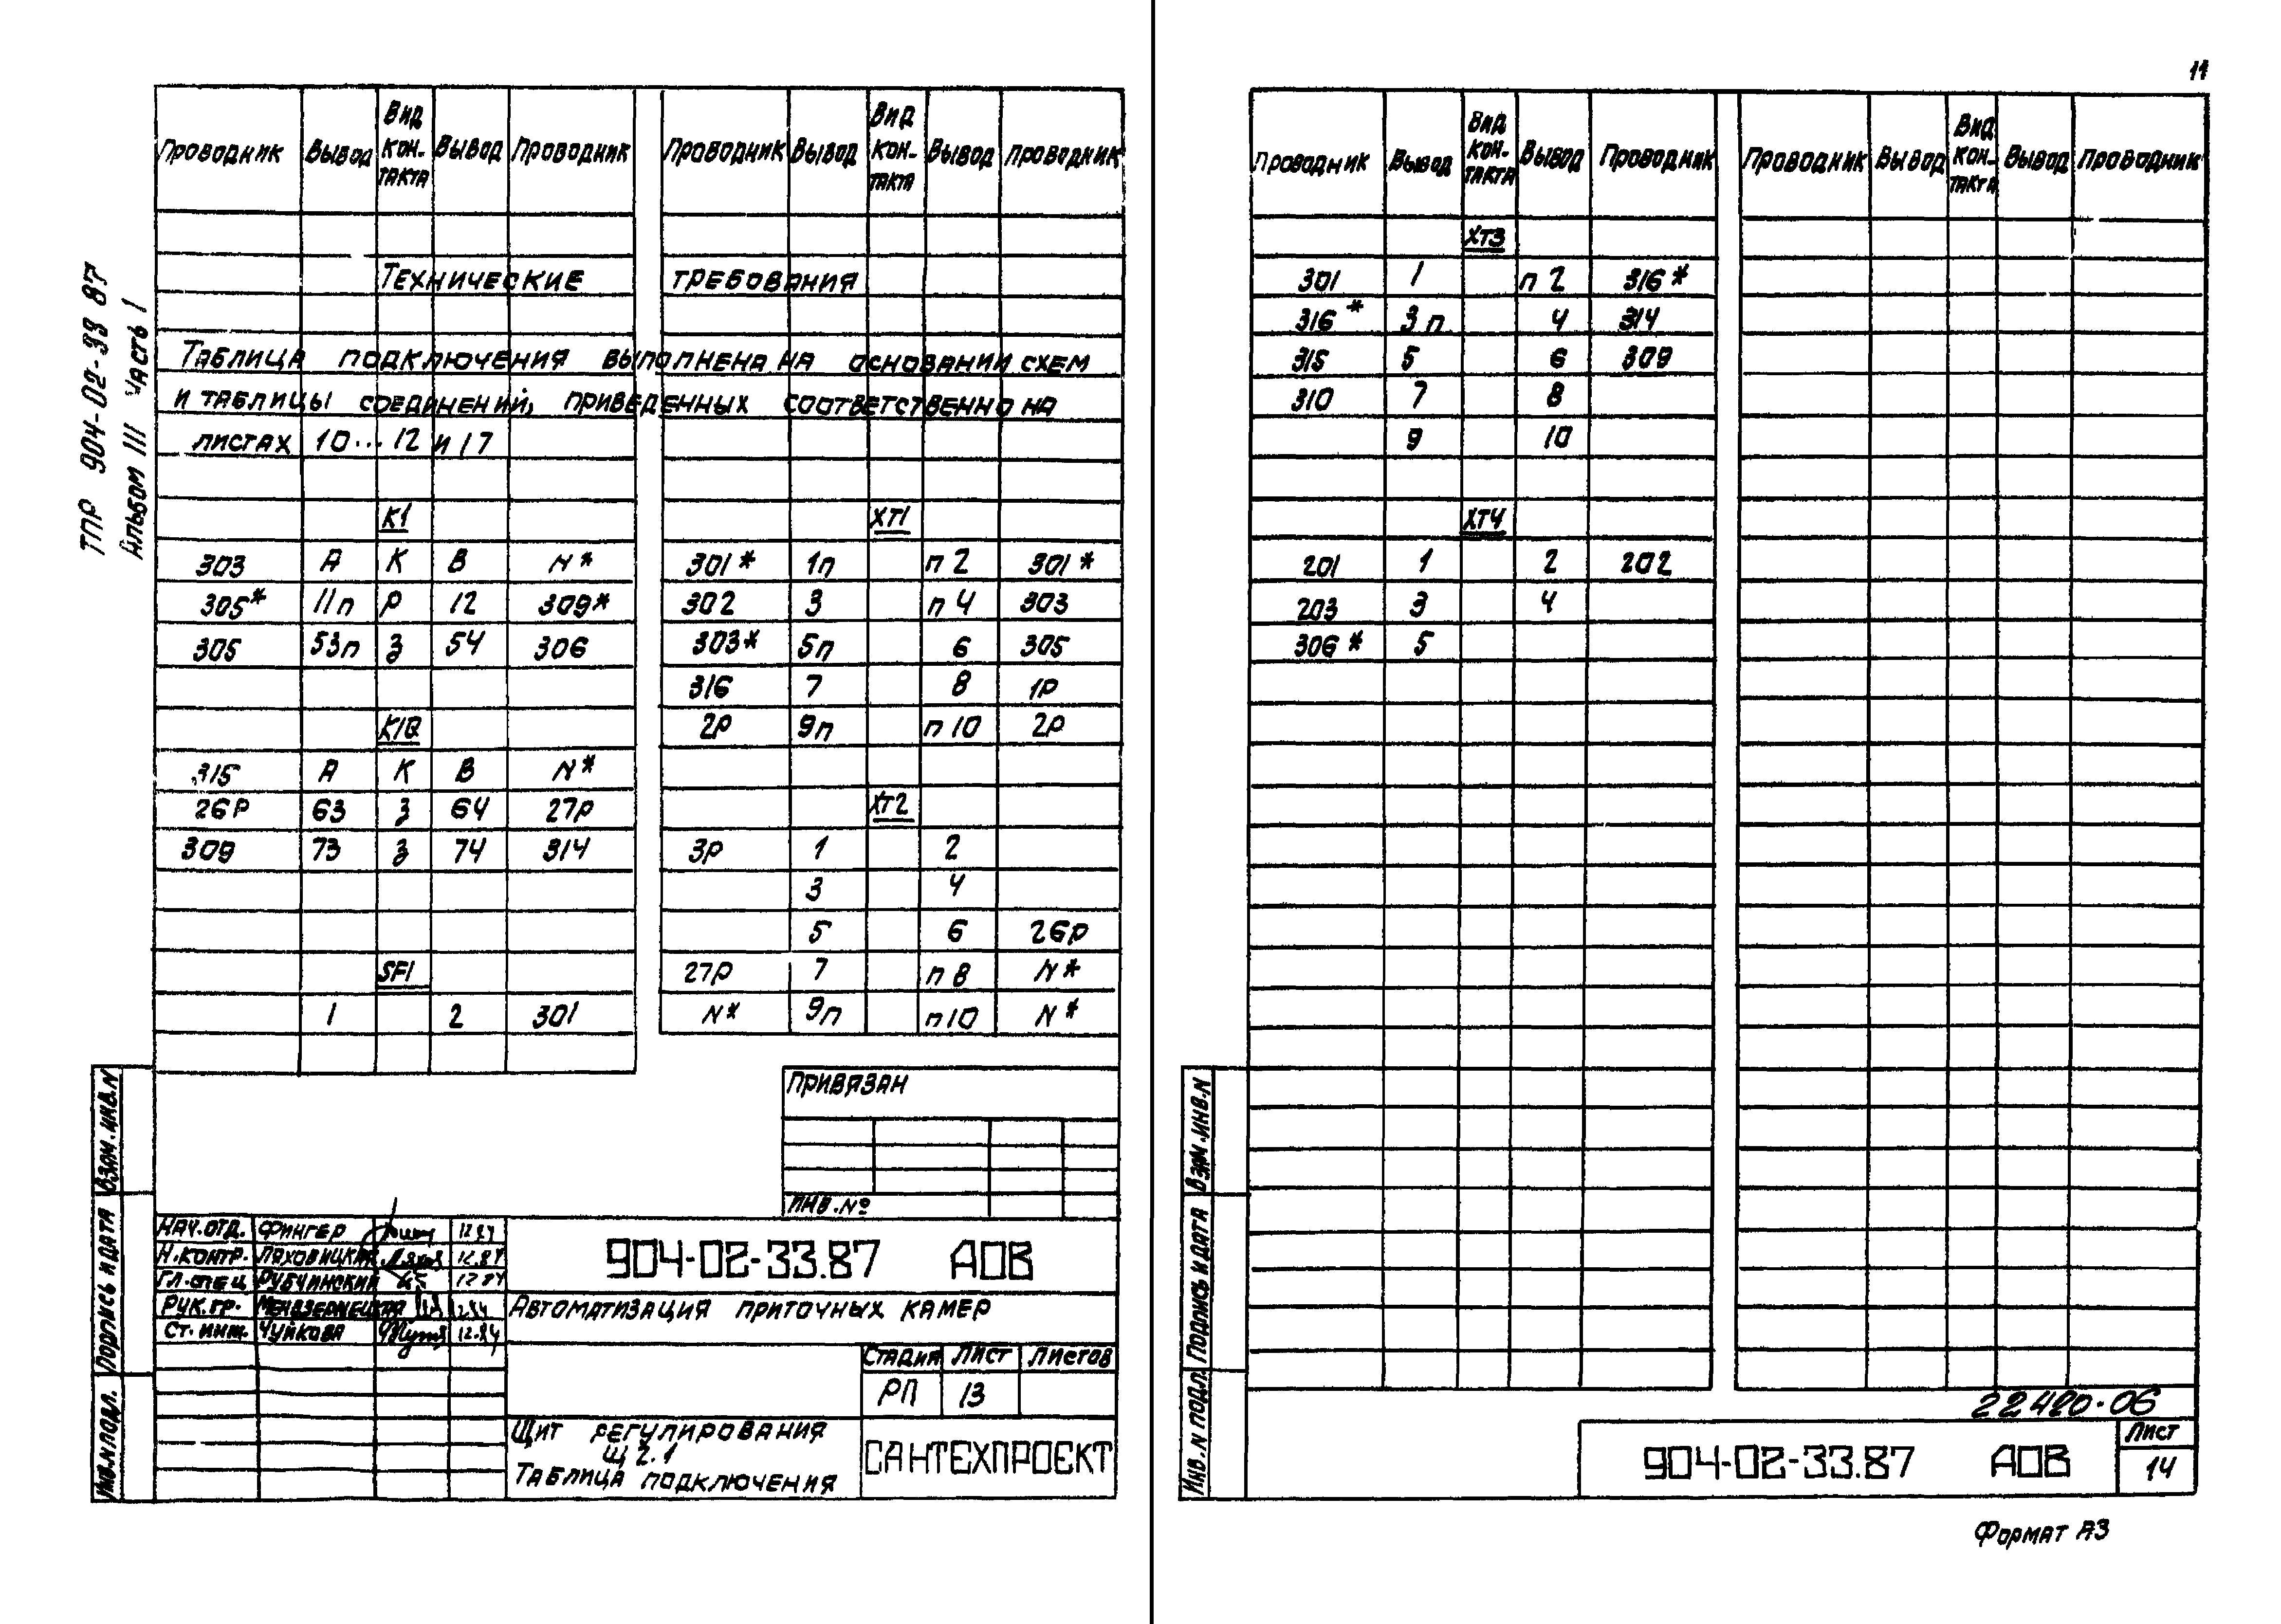 11
ТПР 904-02-33 87
Альбом III Часть I
Проводник Вывод Вид кон-такта Вывод Проводник
Технические требования
Таблица подключения выполнена на основании схем
и таблицы соединений, приведенных соответственно на
листах 10...12 и 17
К1
303 А К В N*
305* 11п Р 12 309*
305 53п З 54 306
К1Q
315 А К В N*
26Р 63 З 64 27Р
309 73 З 74 314
SF1
1 2 301
Проводник Вывод Вид кон-такта Вывод Проводник
ХТ1
301* 1п п2 301*
302 3 п4 303
303* 5п 6 305
316 7 8 1Р
2Р 9п п10 2Р
ХТ2
3Р 1 2
3 4
5 6 26Р
27Р 7 п8 N*
N* 9п п10 N*
Привязан
Инв.№
Нач.отд. Фингер 12.84
Н.контр. Ляховицкая 12.84
Гл.спец Рубчинский 12.84
Рук.гр. 12.84
Ст.инж. Чуйкова 12.84
904-02-33.87 АОВ
Автоматизация приточных камер
Стадия Лист Листов
РП 13
Щит регулирования
Щ2.1
Таблица подключения
САНТЕХПРОЕКТ
Взам.инв.N
Подпись и дата
Инв.N подл.
Проводник Вывод Вид кон-такта Вывод Проводник
ХТ3
301 1 п2 316*
316* 3п 4 314
315 5 6 309
310 7 8
9 10
ХТ4
201 1 2 202
203 3 4
306* 5
Проводник Вывод Вид кон-такта Вывод Проводник
Взам.инв.N
Подпись и дата
Инв.N подл.
22420-06
904-02-33.87 АОВ
Лист
14
Формат А3